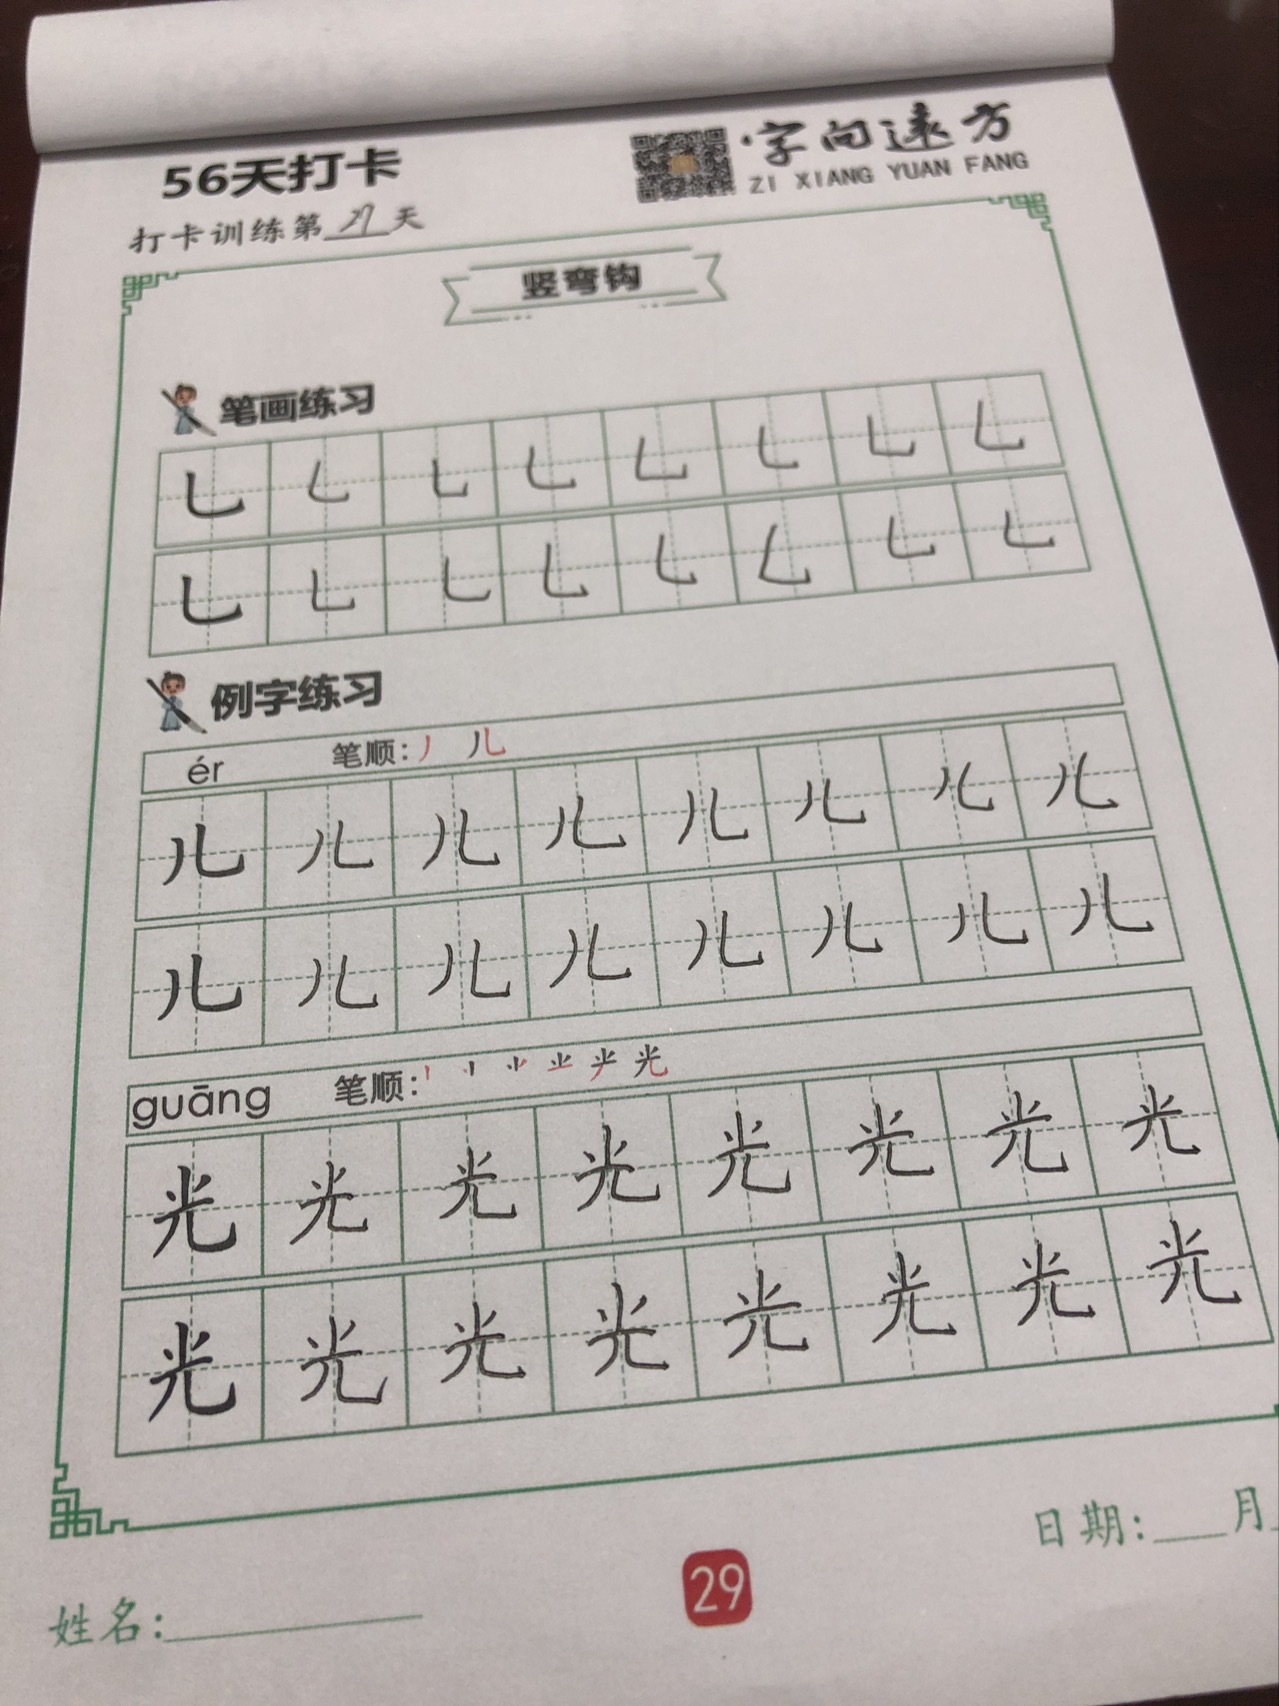 56天打卡
字向远方
ZI XIANG YUAN FANG
打卡训练第29天
竖弯钩
笔画练习
乚 乚 乚 乚 乚 乚 乚 乚
乚 乚 乚 乚 乚 乚 乚 乚
例字练习
ér 笔顺: 丿 儿
儿 儿 儿 儿 儿 儿 儿 儿
儿 儿 儿 儿 儿 儿 儿 儿
guāng 笔顺: 光
光 光 光 光 光 光 光 光
光 光 光 光 光 光 光 光
日期:___月
29
姓名: